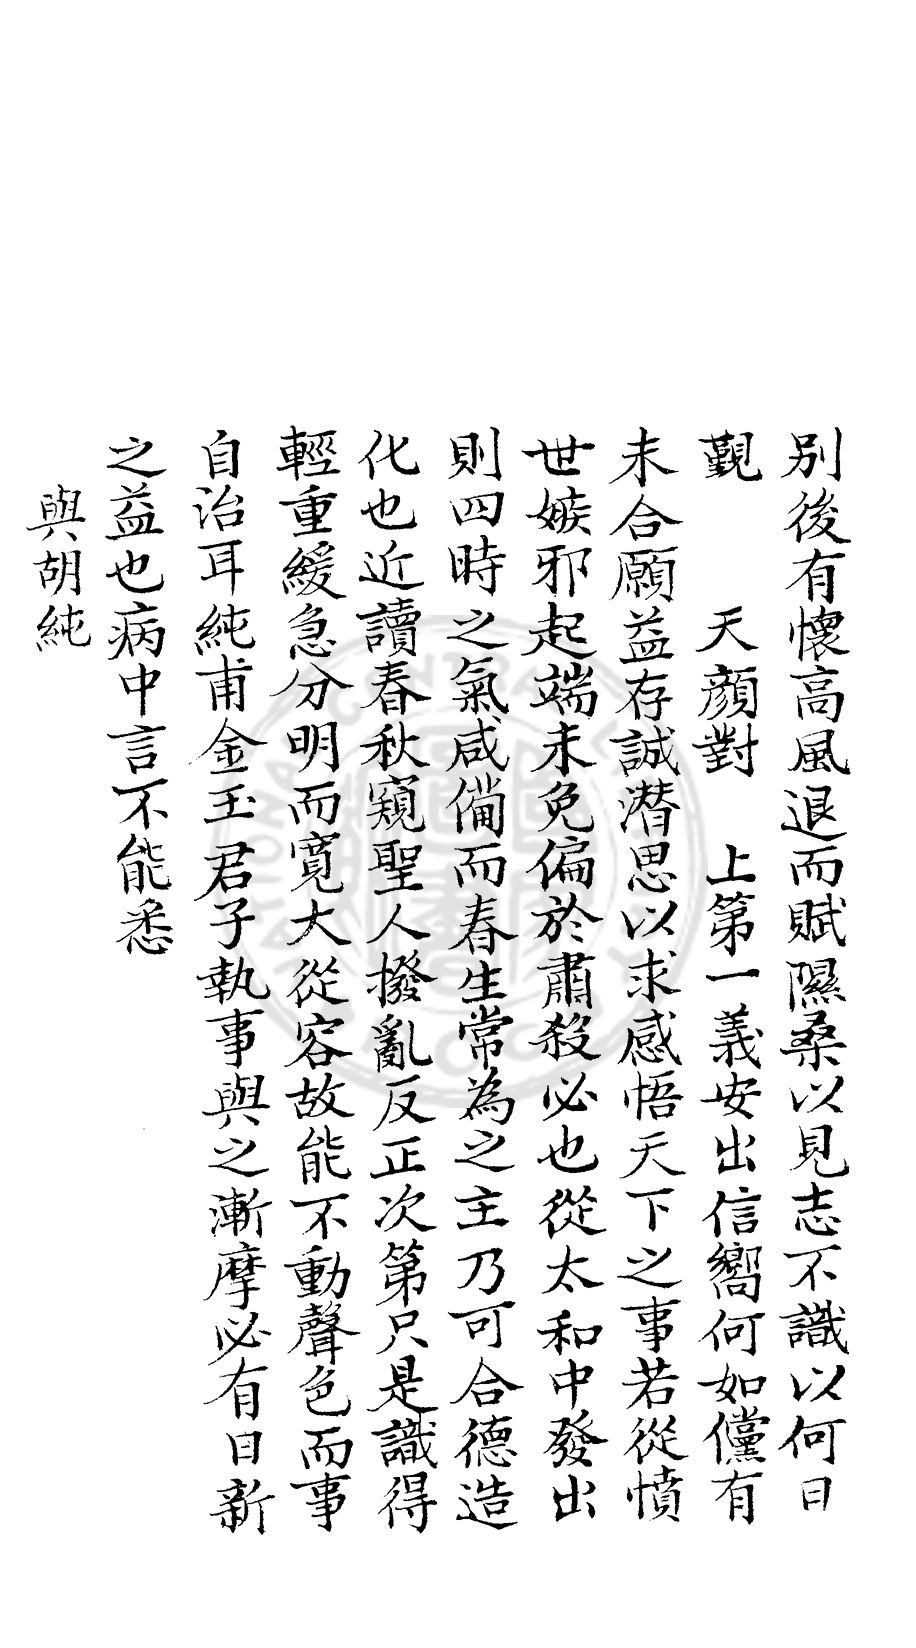 別後有懷高風退而賦隰桑以見志不識以何日
觐 天顔對 上第一義安出信嚮何如儻有
未合願益存誠潜思以求感悟天下之事若從憤
世嫉邪起端未免偏於肅殺必也從太和中發出
則四時之氣咸備而春生常為之主乃可合德造
化也近讀春秋窺聖人撥亂反正次第只是識得
輕重緩急分明而寬大從容故能不動聲色而事
自治耳純甫金玉君子執事與之漸摩必有日新
之益也病中言不能悉
與胡純